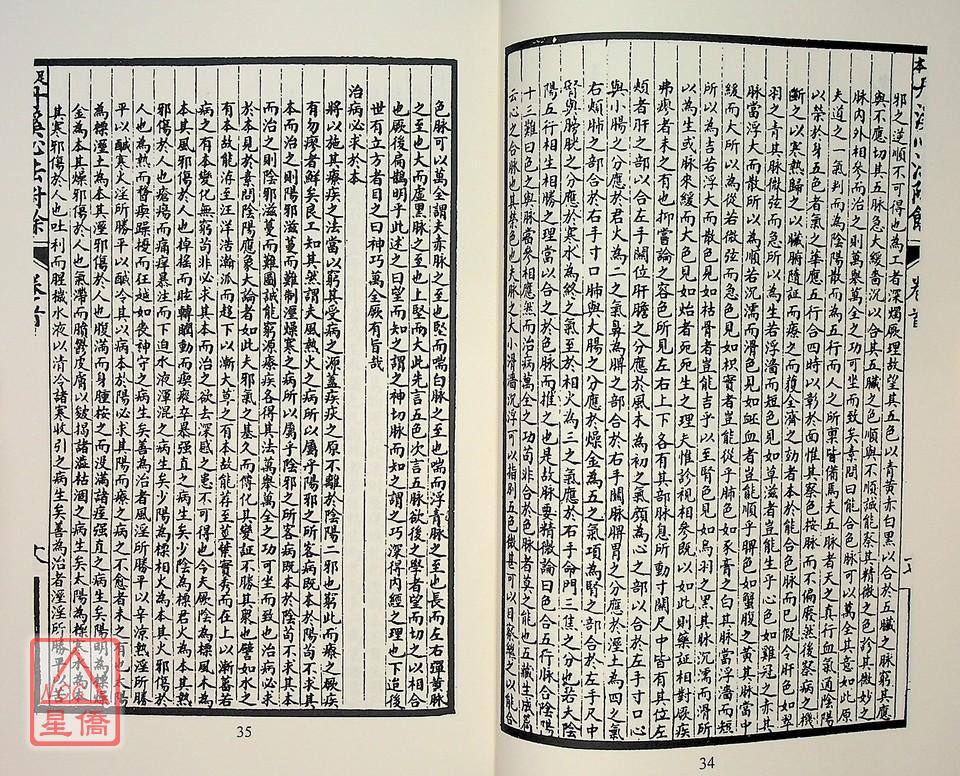 邪之逆順不可得也為工者深燭厥理故望其五色以青黃赤白黑以合於五臟之脉窮其應
與不應切其五脉急大緩濇沉以合其五臟之色順與不順誠能察其精微之色診其微妙之
脉內外相參而治之則萬舉萬全之功可坐而致矣素問曰能合色脉可以萬全其意如此原
夫道之一氣判而為陰陽散而為五行而人之所稟皆備焉夫五脉者天之真行血氣通陰陽
以榮於身五色者氣之華應五行合四時以彰於面惟其察色按脉而不偏廢然後察病之機
斷之以寒熱歸之以臟腑隨証而療之而獲全濟之効者本於能合色脉而已假令肝色如翠
羽之青其脉微弦而急所以為生若浮濇而短色見如草滋者豈能生乎心色如雞冠之赤其
脉當浮大而散所以為順若沉濡而滑色見如衃血者豈能順乎脾色如蟹腹之黃其脉當中
緩而大所以為從若微弦而急色見如枳實者豈能從乎肺色如豕膏之白其脉當浮濇而短
所以為吉若浮大而散色見如枯骨者豈能吉乎以至腎色見如烏羽之黑其脉沉濡而滑所
以為生或脉來緩而大色見如炲者死死生之理夫惟診視相參既以如此則藥証相對厥疾
弗瘳者未之有也抑嘗論之容色所見左右上下各有其部脉息所動寸關尺中皆有其位左
頰者肝之部以合左手關位肝膽之分應於風木為初之氣顏為心之部以合於左手寸口心
與小腸之分應於君火為二之氣鼻為脾之部合於右手關脉脾胃之分應於溼土為四之氣
右頰肺之部合於右手寸口肺與大腸之分應於燥金為五之氣項為腎之部合於左手尺中
腎與膀胱之分應於寒水為終之氣至於相火為三之氣應於右手命門三焦之分也若夫陰
陽五行相生相勝之理當以合之於色脉而推之也是故脉要精微論曰色合五行脉合陰陽
十三難曰色之與脉當參相應然而治病萬全之功苟非合於色脉者莫之能也五臟生成篇
云心之合脉也其榮色也夫脉之大小滑濇沉浮可以指別五色微甚可以目察繼之以能合
34
色脉可以萬全謂夫赤脉之至也堅而喘白脉之至也喘而浮青脉之至也長而左右彈黃脉
之至也大而虛黑脉之至也上堅而大此先言五色次言五脉欲後之學者望而切之以相合
也厥後扁鵲明乎此述之曰望而知之謂之神切脉而知之謂之巧深得內經之理也下迨後
世有立方者目之曰神巧萬全厥有旨哉
治病必求於本
將以施其療疾之法當以窮其受病之源蓋疾疢之原不離於陰陽二邪也窮此而療之厥疾
有勿瘳者鮮矣良工知其然謂夫風熱火之病所以屬乎陽邪之所客病既本於陽苟不求其
本而治之則陽邪滋蔓而難制溼燥寒之病所以屬乎陰邪之所客病既本於陰苟不求其本
而治之則陰邪滋蔓而難圖誠能窮源療疾各得其法萬舉萬全之功可坐而致也治病必求
於本見於素問陰陽應象大論者如此夫邪氣之基久而傳化其變証不勝其衆也譬如水之
有本故能游至汪洋浩瀚派而趨下以漸大草之有本故能荐至莖葉實秀而在上以漸蕃若
病之有本變化無窮苟非必求其本而治之欲去深感之患不可得也今夫厥陰為標風木為
本其風邪傷於人也掉搖而眩轉瞤動而瘈瘲卒暴强直之病生矣少陰為標君火為本其熱
邪傷於人也瘡瘍而痛痒暴注而下迫水液渾混之病生矣少陽為標相火為本其火邪傷於
人也為熱而瞀瘈躁擾而狂越如喪神守之病生矣善為治者風淫所勝平以辛涼熱淫所勝
平以鹹寒火淫所勝平以鹹冷其以病本於陽必求其陽而療之病之不愈者未之有也太陰
為標溼土為本其溼邪傷於人也腹滿而身腫按之而沒指諸痙强直之病生矣陽明為標燥
金為本其燥邪傷於人也氣滯而膹鬱皮膚以皴揭諸澁枯涸之病生矣太陽為標寒水為本
其寒邪傷於人也吐利而腥穢水液以清冷諸寒收引之病生矣善為治者溼淫所勝平以苦
35
星僑